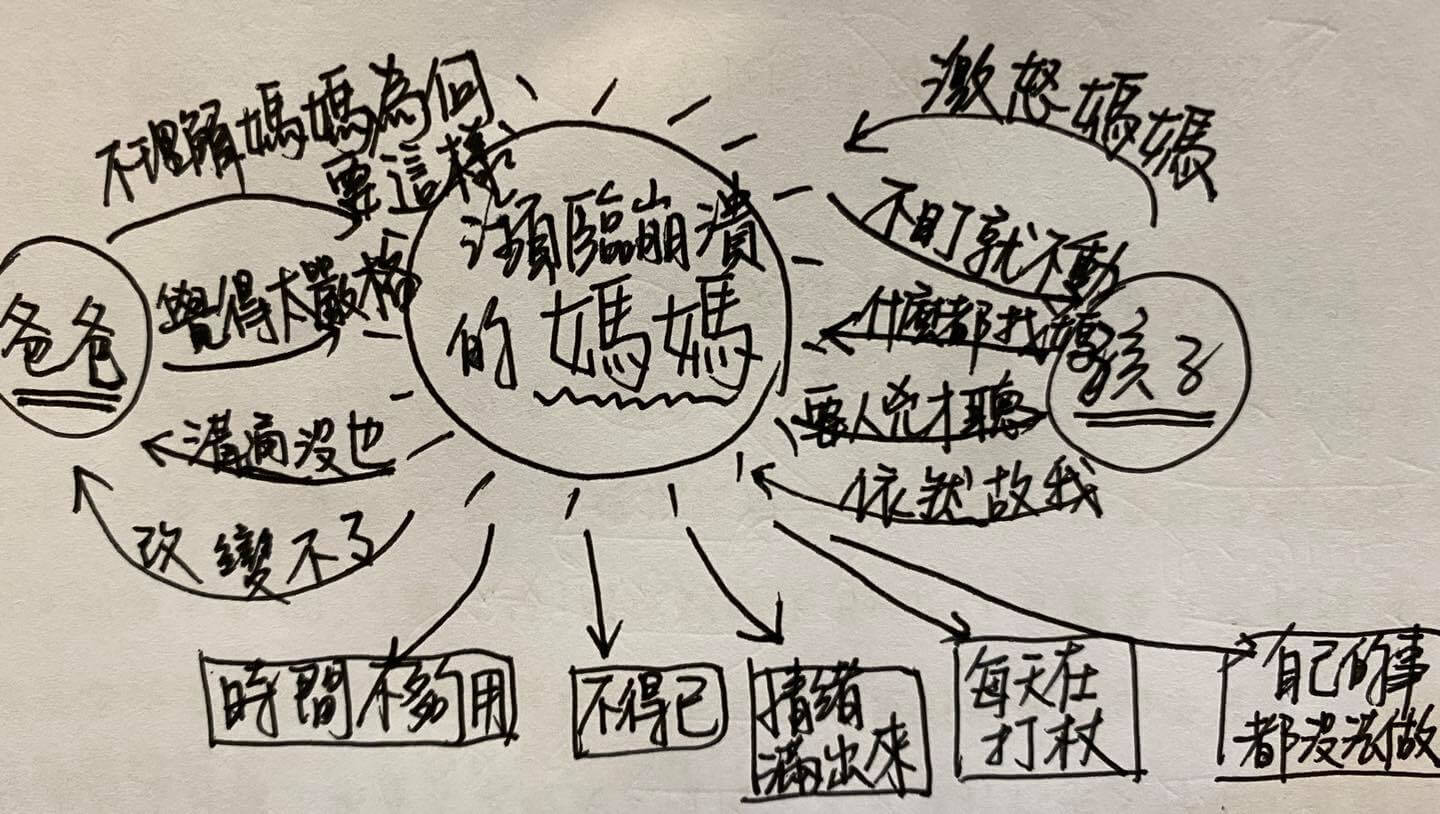 不理解媽媽為何
要這樣
激怒媽媽
瀕臨崩潰
的媽媽
不盯就不動
爸爸
覺得太嚴格
什麼都找媽
孩子
要人兇才聽
溝通沒也
依然故我
改變不了
時間不夠用
不得已
情緒
滿出來
每天在
打杖
自己的事
都沒法做